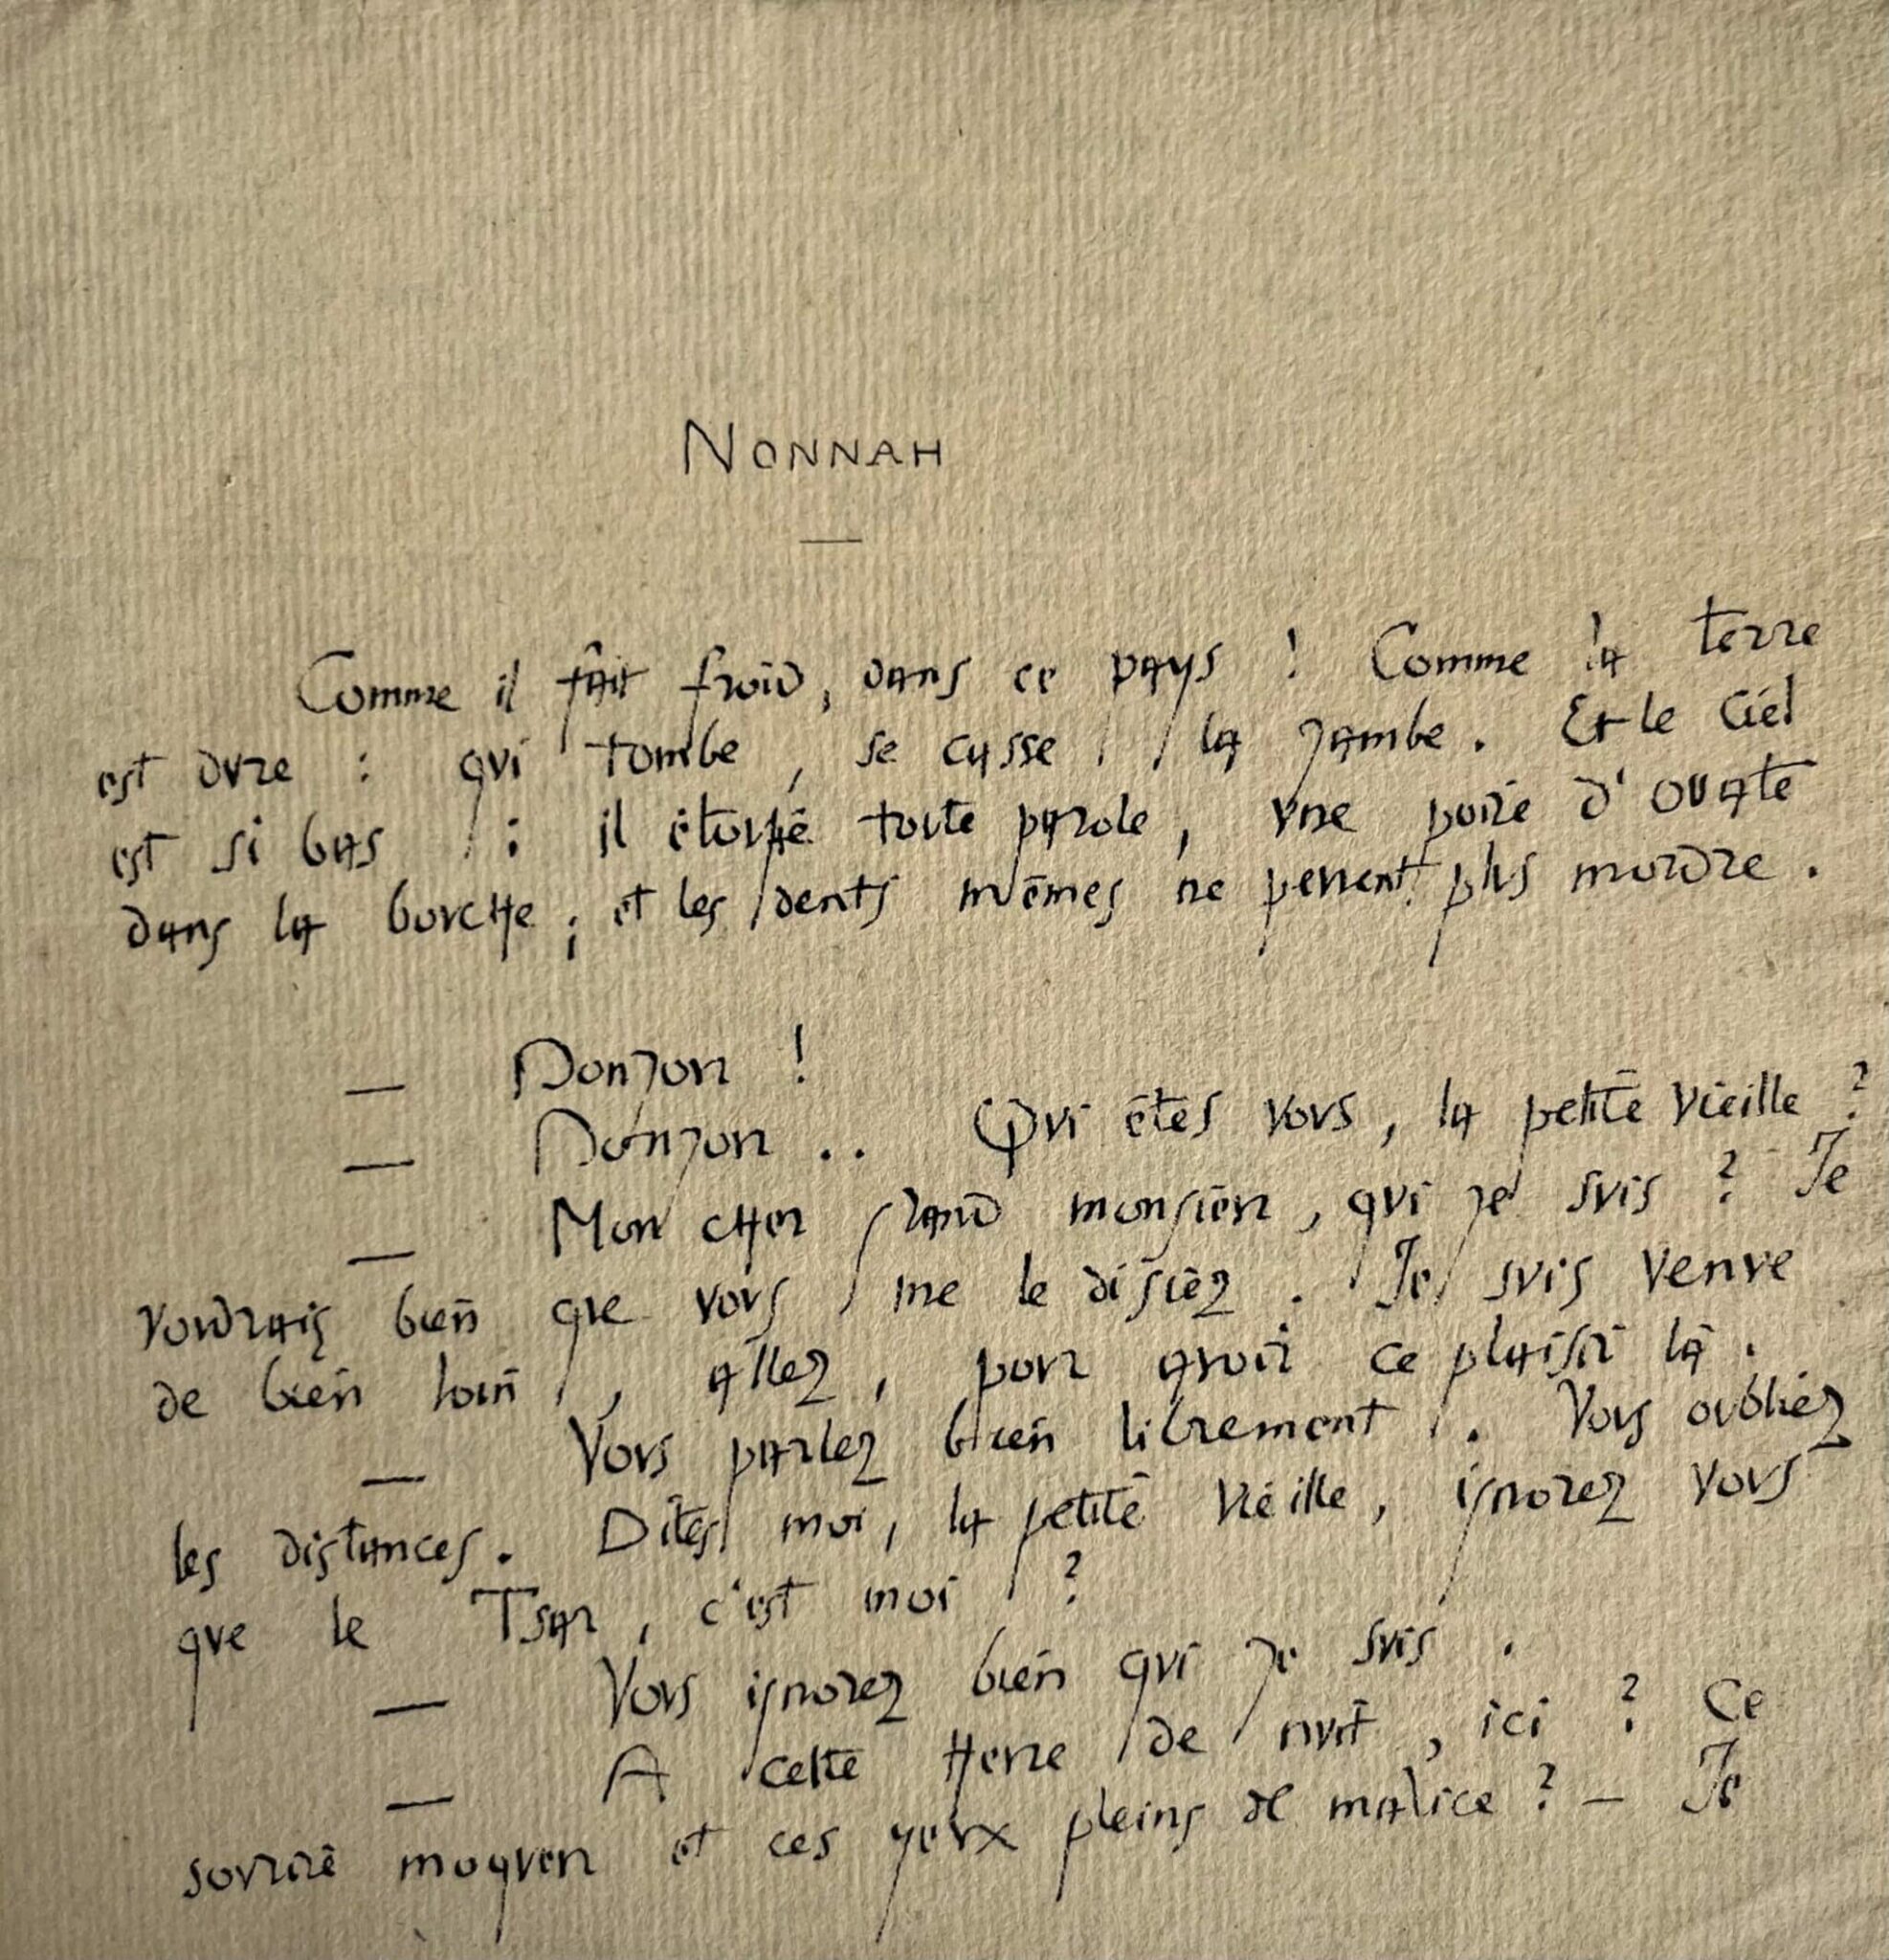 NONNAH
Comme il fait froid, dans ce pays ! Comme la terre
est dure : qui tombe, se casse la jambe. Et le ciel
est si bas : il étouffe toute parole, une poire d'ouate
dans la bouche ; et les dents mêmes ne peuvent plus mordre.
— Donjon !
— Donjon .. Qui êtes vous, la petite vieille ?
— Mon cher grand monsieur, qui je suis ? Je
voudrais bien que vous me le disiez. Je suis venue
de bien loin, allez, pour avoir ce plaisir là.
— Vous parlez bien librement. Vous oubliez
les distances. Dites moi, la petite vieille, ignorez vous
que le Tsar, c'est moi ?
— Vous ignorez bien qui je suis.
— A cette heure de nuit, ici ? Ce
sourire moqueur et ces yeux pleins de malice ? — Je